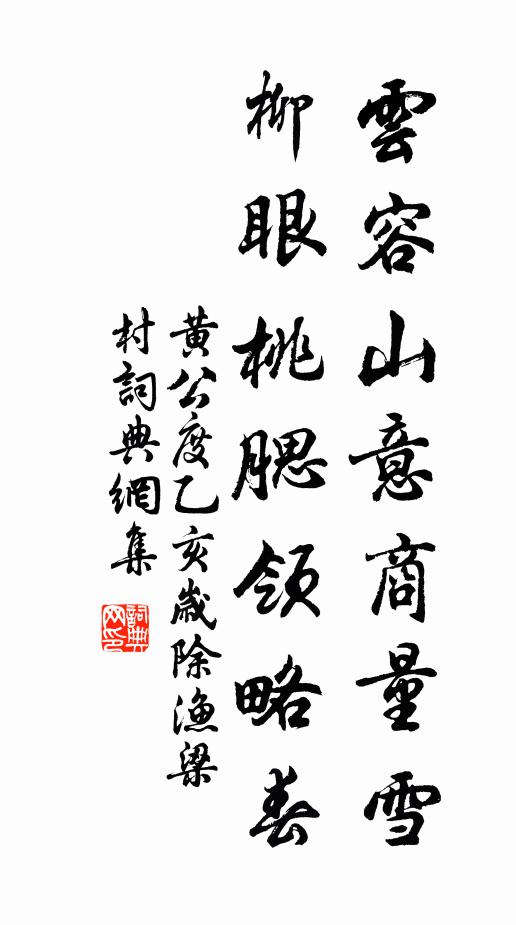 雲容山意商量雪
柳眼桃腮領略春
黃公度乙亥歲除漁梁
村詞典網集
詞典網印